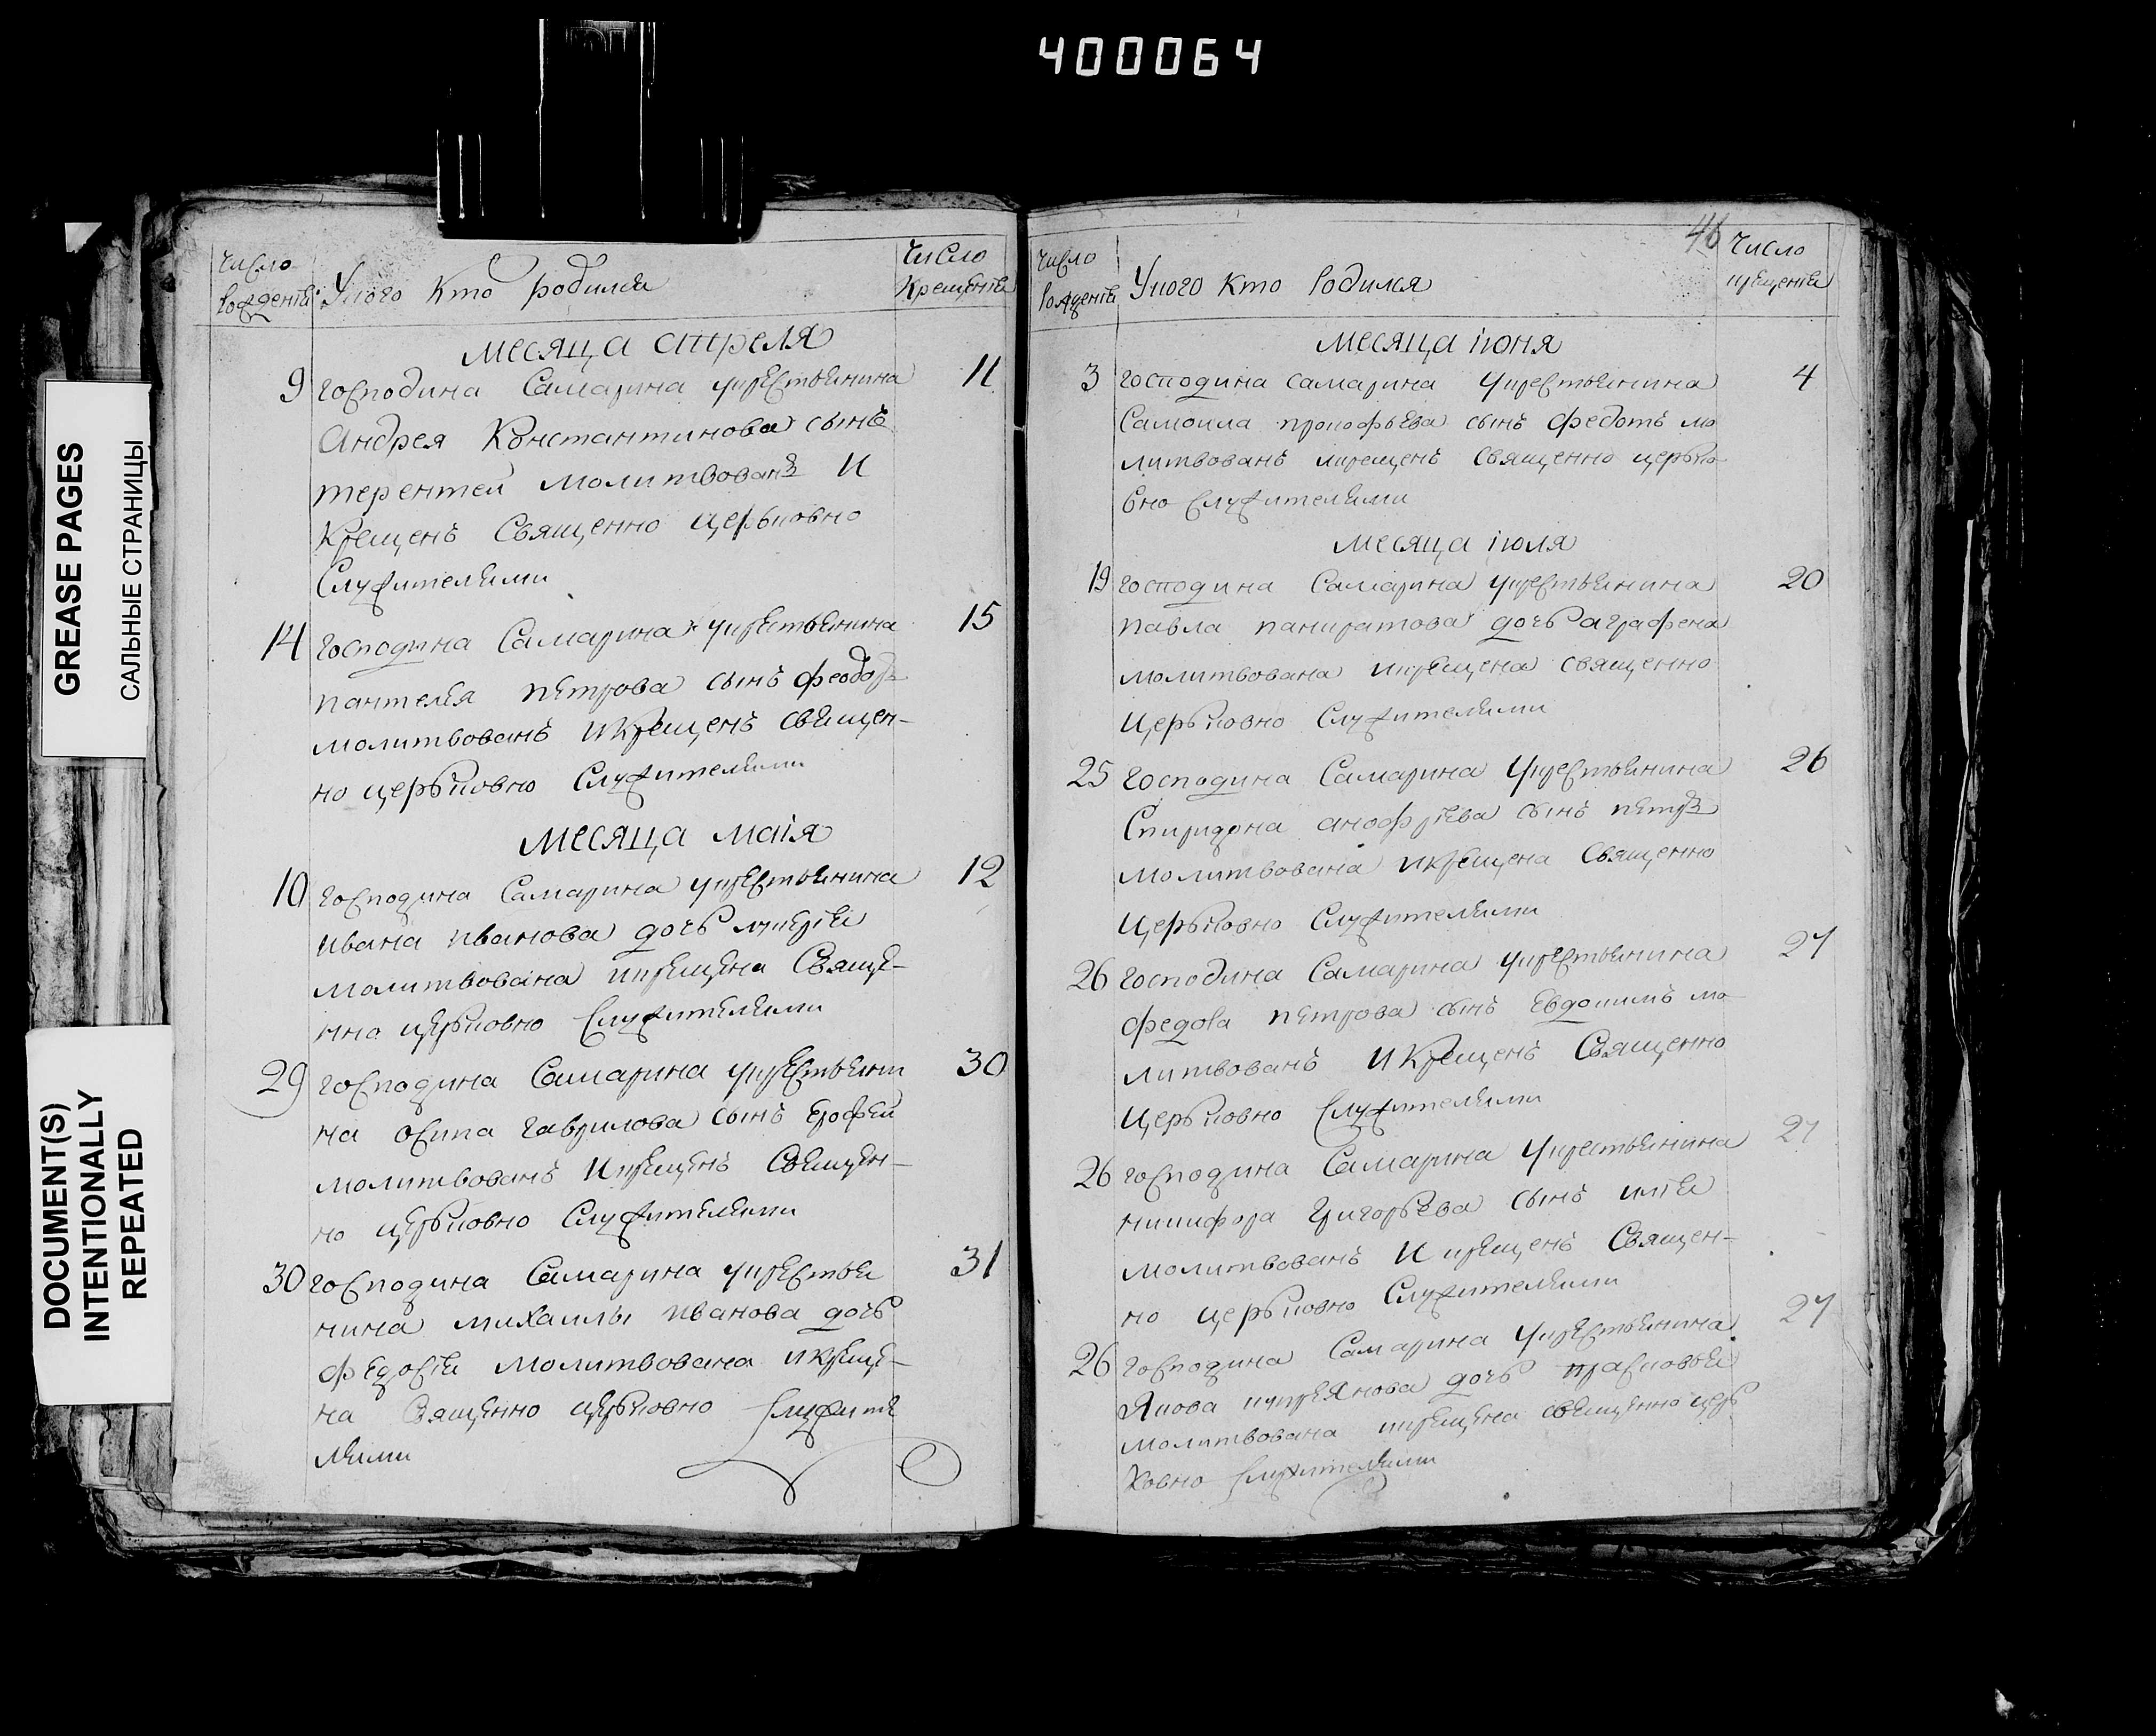 400064
GREASE PAGES
САЛЬНЫЕ СТРАНИЦЫ
DOCUMENT(S)
INTENTIONALLY
REPEATED
Число рожденїя
Укого Кто родился
Число Крещенїя
месяца апреля
9 господина Самарина укрестьянина 11
Андрея Константинова сынъ
терентей молитвованъ И
Крещенъ Священно церьковно
Служителями
14 господина Самарина укрестьянина 15
пантелея петрова сынъ феодоръ
молитвованъ икрещенъ свещен-
но церьковно Служителями
месяца маїя
10 господина Самарина укрестьянина 12
ивана иванова дочь
молитвована икрещена Свяще-
нно церьковно Служителями
29 господина Самарина укрестьяни 30
на осипа гаврилова сынъ ерофеи
молитвованъ Икрещенъ Свещен-
но церьковно Служителями
30 господина Самарина укрестья 31
нина михаилы иванова дочь
федосїя молитвована икреще-
на Священно церьковно Служите
лями
46
Число рожденїя
Укого Кто Родился
Число крещенїя
месяца їюня
3 господина самарина Укрестьянина 4
Самоила прокофьева сынъ федотъ мо
литвованъ икрещенъ Священно церько
вно Служителями
месяца їюля
19 господина Самарина укрестьянина 20
павла панкратова дочь аграфена
молитвована икрещена священно
Церьковно Служителями
25 господина Самарина Укрестьянина 26
Спиридона анофрїева сынъ петръ
молитвована икрещена Священно
Церьковно Служителями
26 господина Самарина укрестьянина 27
федора петрова сынъ Евдокимъ мо
литвованъ И Крещенъ Священно
Церьковно Служителями
26 господина Самарина Укрестьянина 27
никифора Григорьева сынъ илїя
молитвованъ И крещенъ Священ-
но церьковно Служителями
26 господина Самарина Укрестьянина 27
Якова куприянова дочь прасковья
молитвована икрещена свещенно церь
Ковно Служителями